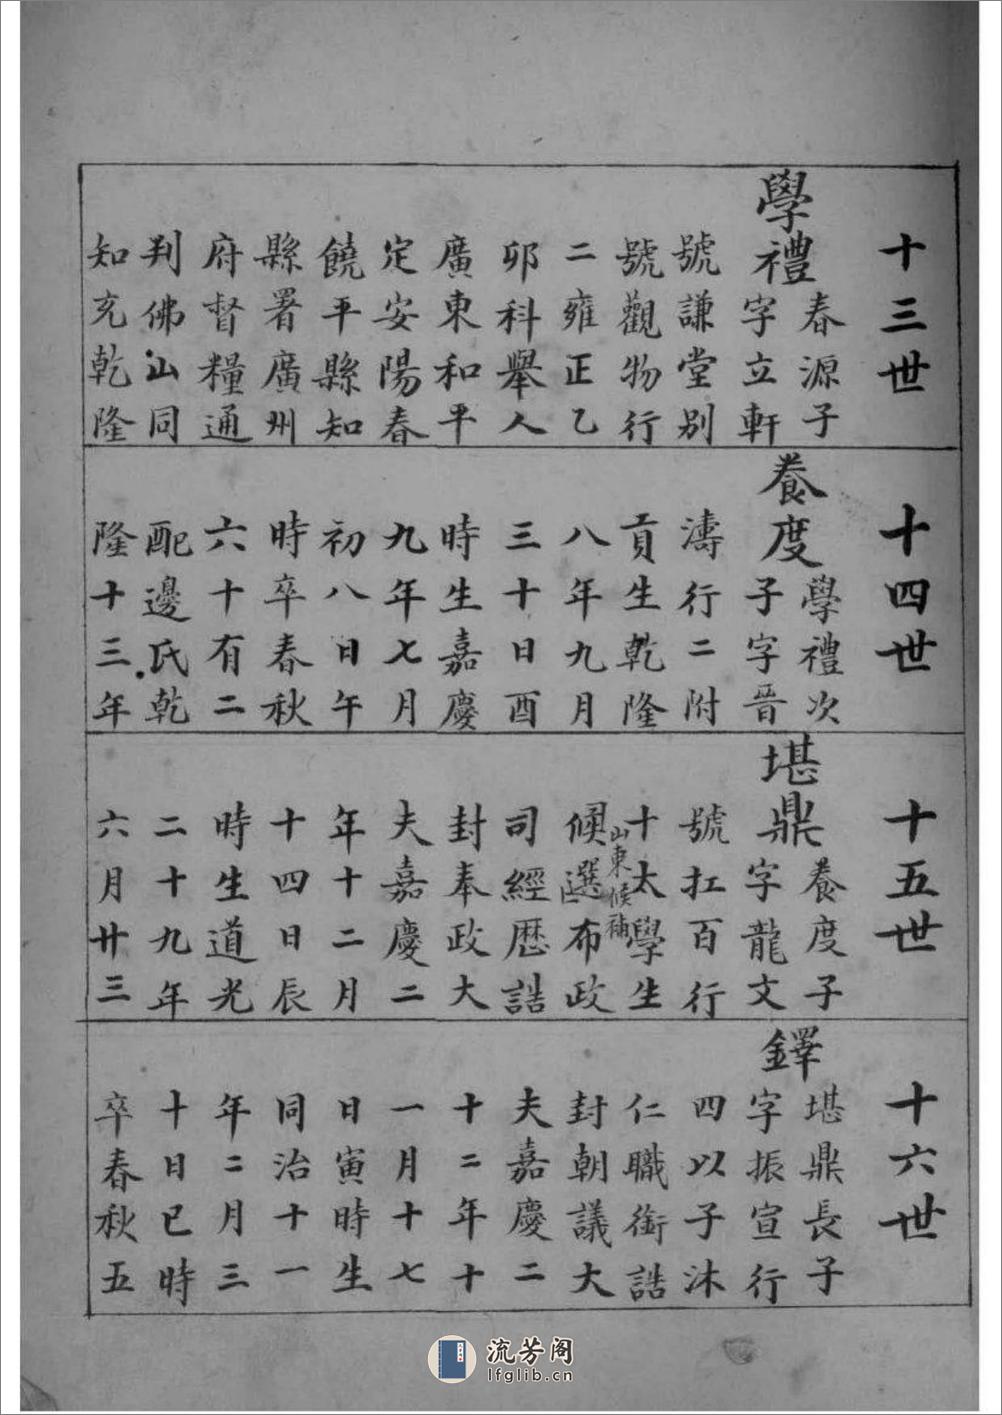 十三世
學禮
春源子
字立軒
號謙堂别
號觀物行
二雍正乙
卯科舉人
廣東和平
定安陽春
饒平縣知
縣署廣州
府督糧通
判佛山同
知充乾隆
十四世
養度
學禮次
子字晉
濤行二附
貢生乾隆
八年九月
三十日酉
時生嘉慶
九年七月
初八日午
時卒春秋
六十有二
配邊氏乾
隆十三年
十五世
堪鼎
養度子
字龍文
號扛百行
十太學生
山東候補
候選布政
司經厯誥
封奉政大
夫嘉慶二
年十二月
十四日辰
時生道光
二十九年
六月廿三
十六世
鐸
堪鼎長子
字振宣行
四以子沐
仁職銜誥
封朝議大
夫嘉慶二
十二年十
一月十七
日寅時生
同治十一
年二月三
十日巳時
卒春秋五
流芳阁
lfglib.cn